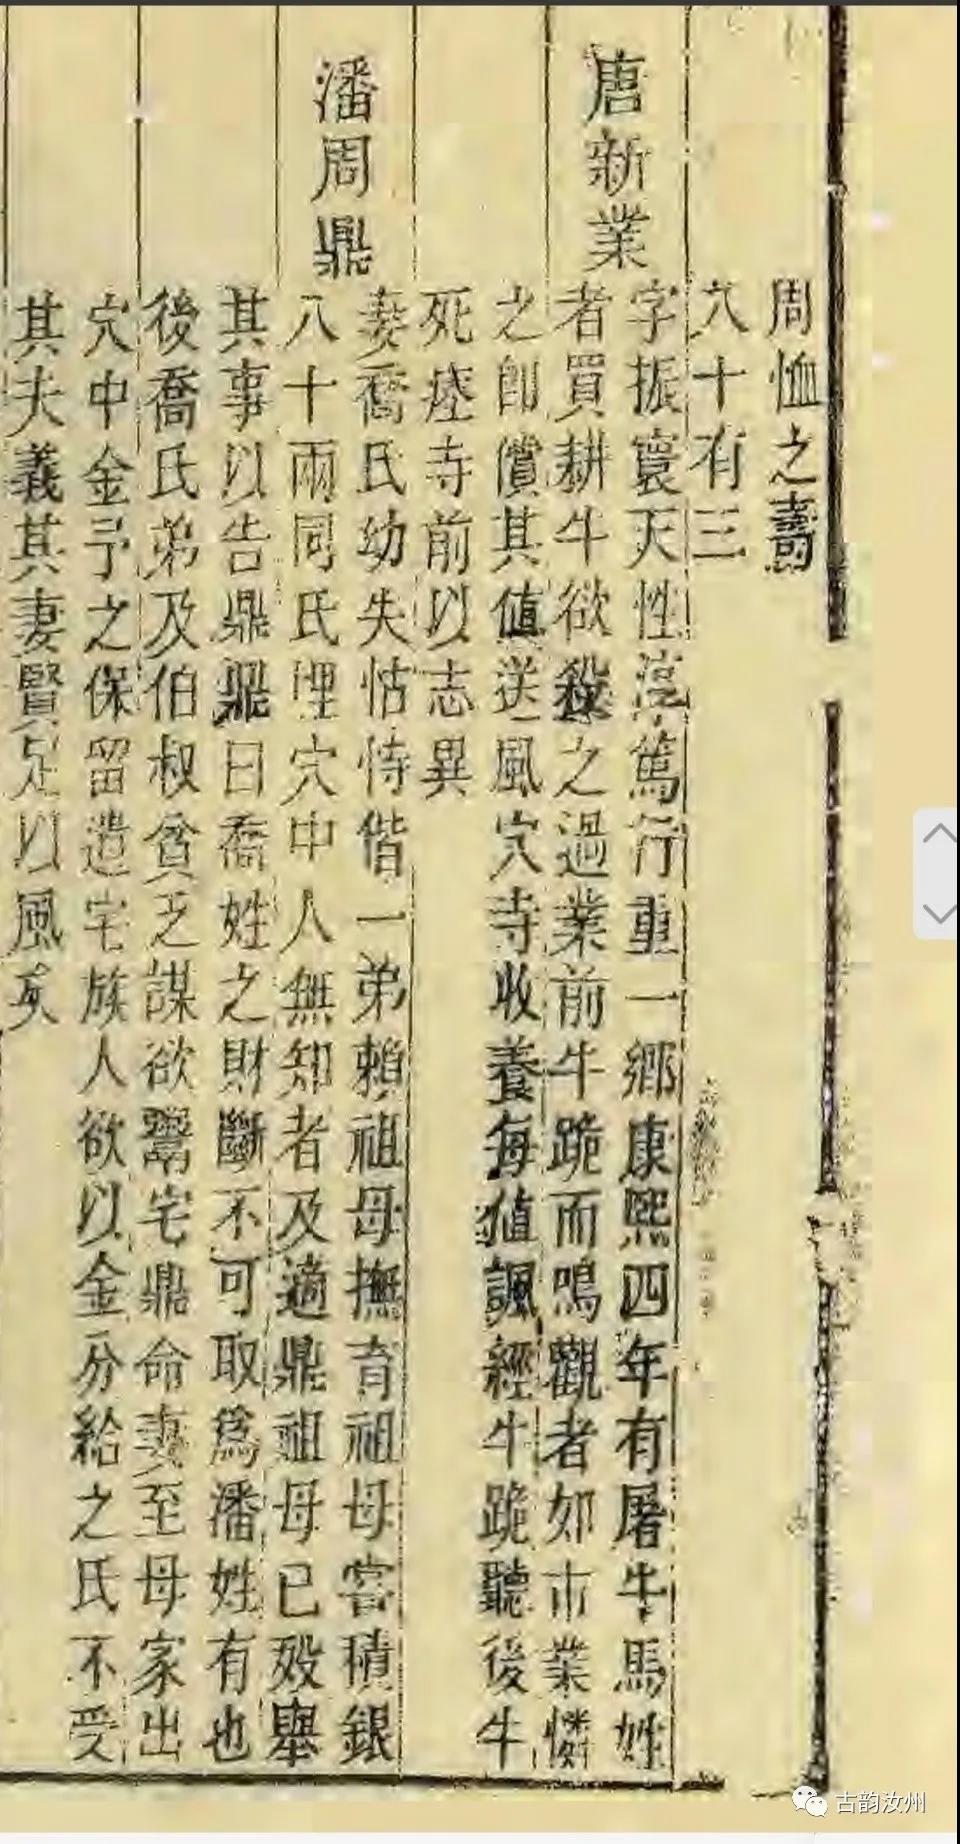 周恤之壽
八十有三
唐新業
字振寰天性淳篤行重一鄉康熙四年有屠牛馬姓
者買耕牛欲殺之過業前牛跪而鳴觀者如市業憐
之卽償其值送風穴寺收養每值諷經牛跪聽後牛
死瘞寺前以志異
潘周鼎
妻喬氏幼失怙恃偕一弟賴祖母撫育祖母嘗積銀
八十兩同氏埋穴中人無知者及適鼎祖母已歿舉
其事以告鼎鼎曰喬姓之財斷不可取爲潘姓有也
後喬氏弟及伯叔貧乏謀欲鬻宅鼎命妻至母家出
穴中金予之保留遺宅族人欲以金分給之氏不受
其夫義其妻賢足以風矣
古韵汝州